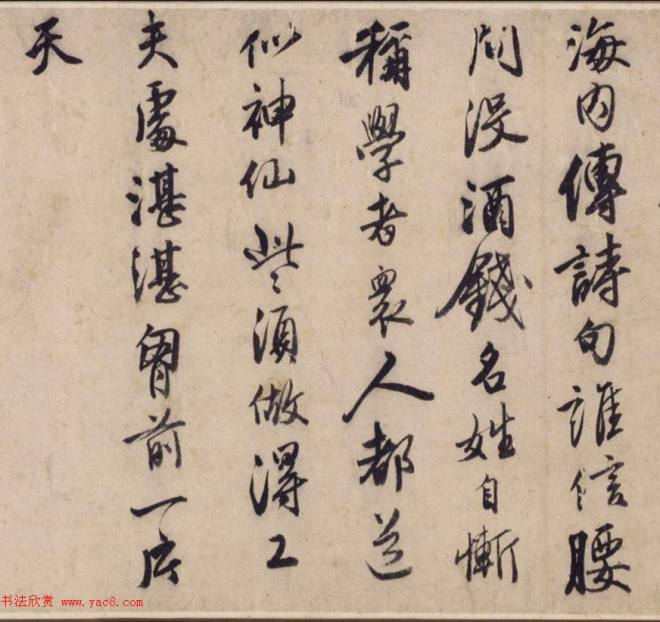 海內傳詩句誰信腰
間沒酒錢名姓自慚
稱學者衆人都道
似神仙些須做得工
夫處湛湛胷前一片
天
书法欣赏 www.yac8.com